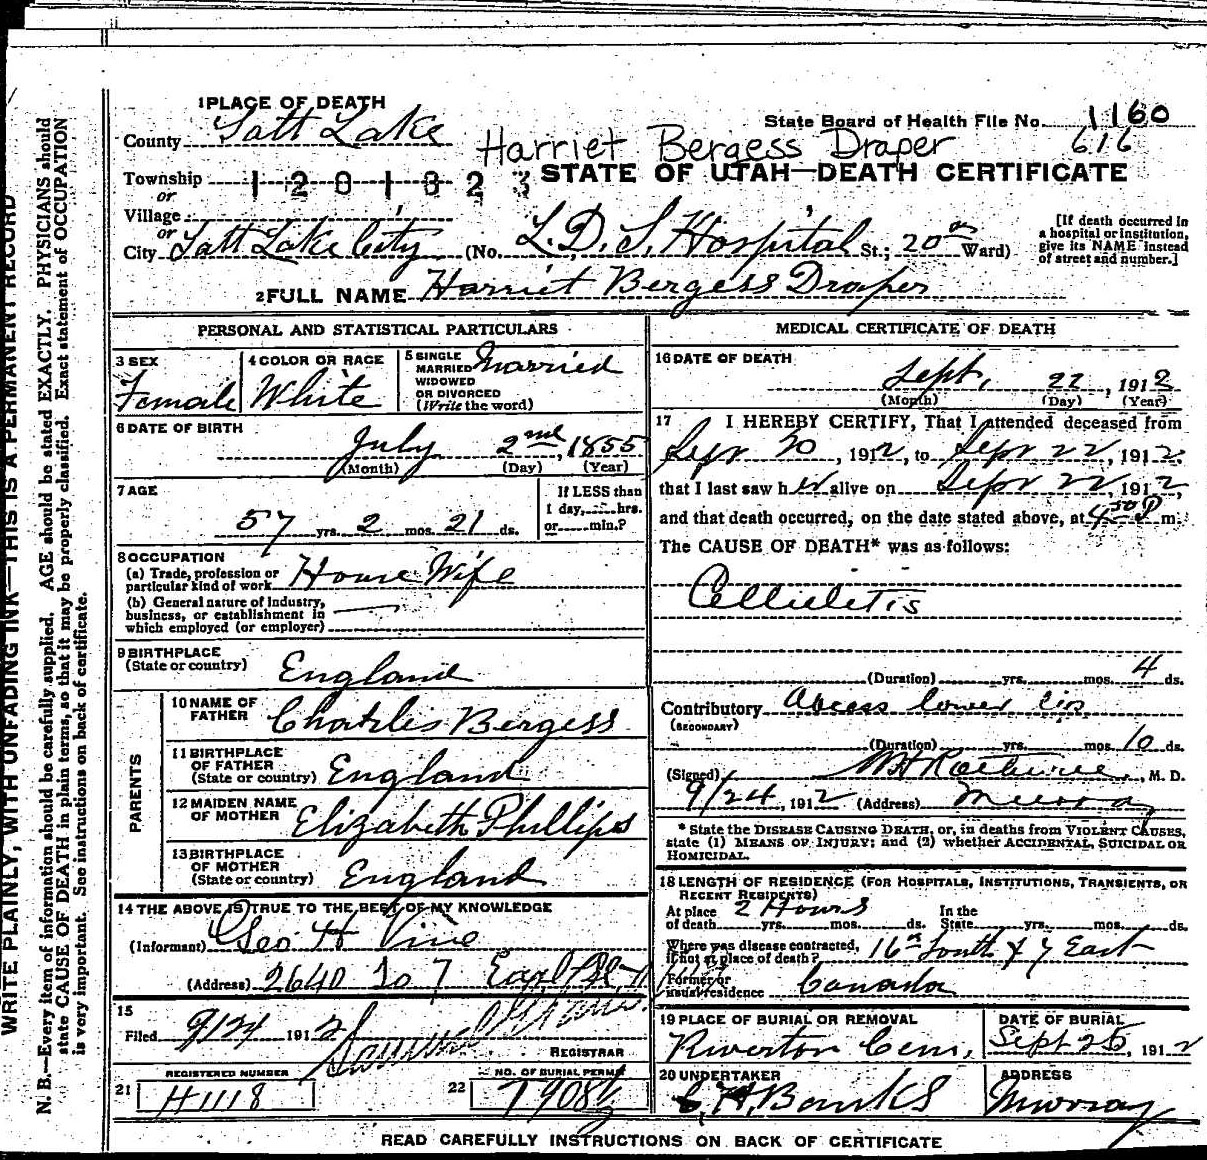 WRITE PLAINLY, WITH UNFADING INK—THIS IS A PERMANENT RECORD
N. B.—Every item of information should be carefully supplied. AGE should be stated EXACTLY. PHYSICIANS should
state CAUSE OF DEATH in plain terms, so that it may be properly classified. Exact statement of OCCUPATION
is very important. See instructions on back of certificate.
1 PLACE OF DEATH
County Salt Lake
State Board of Health File No. 1160
616
Harriet Bergess Draper
Township 1201323
STATE OF UTAH—DEATH CERTIFICATE
or
Village
or
City Salt Lake City (No. L.D.S. Hospital St.; 20th Ward)
[If death occurred in
a hospital or institution,
give its NAME instead
of street and number.]
2 FULL NAME Harriet Bergess Draper
PERSONAL AND STATISTICAL PARTICULARS
3 SEX
Female
4 COLOR OR RACE
White
5 SINGLE
MARRIED
WIDOWED
OR DIVORCED
(Write the word)
Married
6 DATE OF BIRTH
July 2nd, 1855
(Month) (Day) (Year)
7 AGE
57 yrs. 2 mos. 21 ds.
If LESS than
1 day, hrs.
or min.?
8 OCCUPATION
(a) Trade, profession or
particular kind of work House Wife
(b) General nature of industry,
business, or establishment in
which employed (or employer)
9 BIRTHPLACE
(State or country) England
PARENTS
10 NAME OF
FATHER Charles Bergess
11 BIRTHPLACE
OF FATHER
(State or country) England
12 MAIDEN NAME
OF MOTHER Elizabeth Phillips
13 BIRTHPLACE
OF MOTHER
(State or country) England
14 THE ABOVE IS TRUE TO THE BEST OF MY KNOWLEDGE
(Informant) Geo H Vine
(Address) 2640 So 7 East
15
Filed 9/24 1912
REGISTRAR
REGISTERED NUMBER
21 H1118
NO. OF BURIAL PERMIT
22 7908½
MEDICAL CERTIFICATE OF DEATH
16 DATE OF DEATH
Sept. 22, 1912
(Month) (Day) (Year)
17 I HEREBY CERTIFY, That I attended deceased from
Sept 20, 1912, to Sept 22, 1912.
that I last saw her alive on Sept 22, 1912,
and that death occurred, on the date stated above, at 4 30 P m.
The CAUSE OF DEATH* was as follows:
Cellulitis
(Duration) yrs. mos. 4 ds.
Contributory Abcess lower lip
(SECONDARY)
(Duration) yrs. mos. 10 ds.
(Signed) M. D.
9/24, 1912 (Address) Murray
* State the DISEASE CAUSING DEATH, or, in deaths from VIOLENT CAUSES,
state (1) MEANS OF INJURY; and (2) whether ACCIDENTAL, SUICIDAL OR
HOMICIDAL.
18 LENGTH OF RESIDENCE (FOR HOSPITALS, INSTITUTIONS, TRANSIENTS, OR
RECENT RESIDENTS)
At place 2 Hours In the
of death yrs. mos. ds. State yrs. mos. ds.
Where was disease contracted, 16th South & 7 East
if not at place of death?
Former or
usual residence Canada
19 PLACE OF BURIAL OR REMOVAL
Riverton Cem.
DATE OF BURIAL
Sept 25, 1912
20 UNDERTAKER
C. H. Banks
ADDRESS
Murray
READ CAREFULLY INSTRUCTIONS ON BACK OF CERTIFICATE